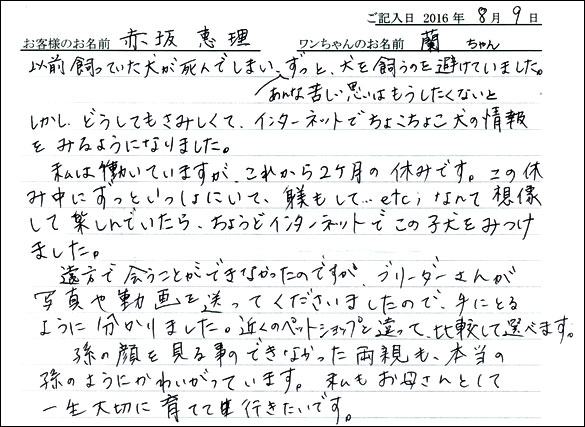 ご記入日 2016年 8月 9日
お客様のお名前 赤坂 恵理 ワンちゃんのお名前 蘭 ちゃん
以前飼っていた犬が死んでしまい、ずっと、犬を飼うのを避けていました。
あんな苦しい思いはもうしたくないと
しかし、どうしてもさみしくて、インターネットでちょこちょこ犬の情報
をみるようになりました。
私は働いていますが、これから2ヶ月の休みです。この休
み中にずっといっしょにいて、躾もして…etc; なんて想像
して楽しんでいたら、ちょうどインターネットでこの子犬をみつけ
ました。
遠方で会うことができなかったのですが、ブリーダーさんが
写真や動画を送ってくださいましたので、手にとる
ように分かりました。近くのペットショップと違って、比較して選べます。
孫の顔を見る事のできなかった両親も、本当の
孫のようにかわいがっています。私もお母さんとして
一生大切に育てて行きたいです。